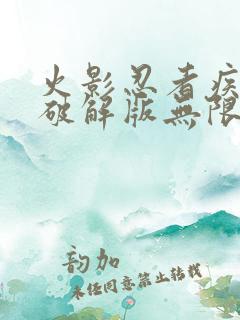 火影忍者疾
破解版無限
韵加
未经同意禁止转载